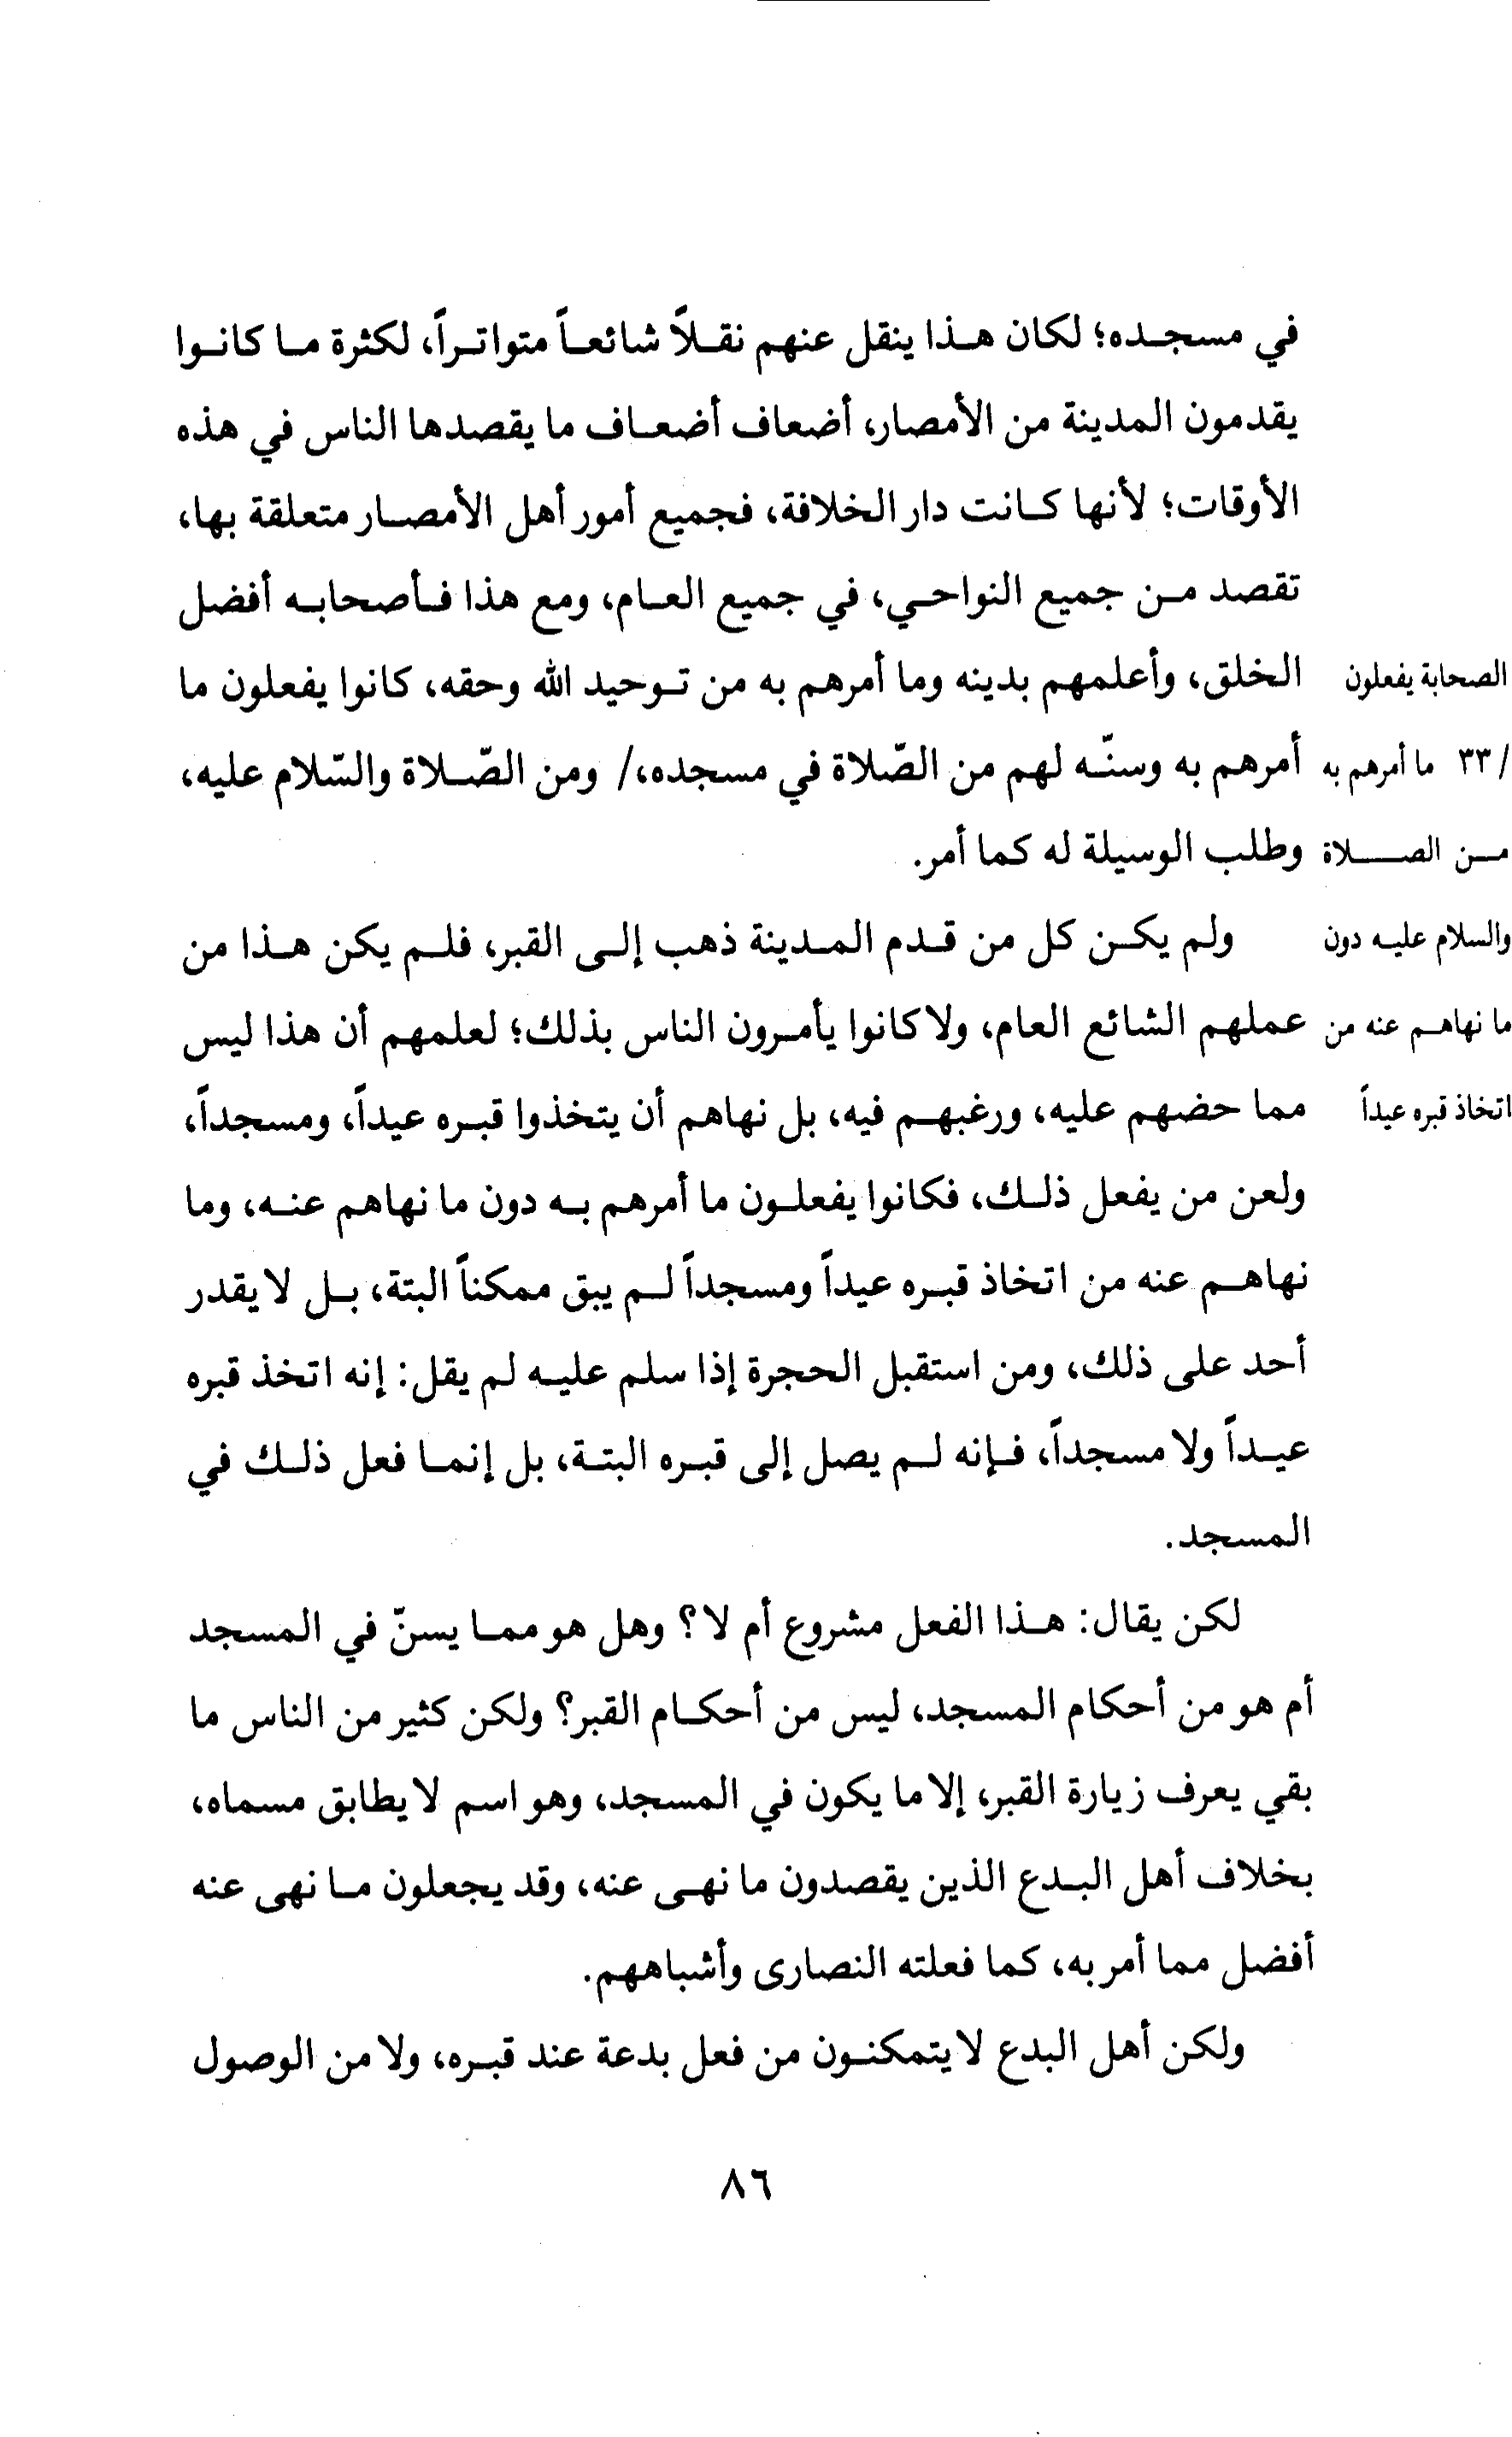 في مسجده؛ لكان هذا ينقل عنهم نقلاً شائعاً متواتراً، لكثرة ما كانوا
يقدمون المدينة من الأمصار، أضعاف أضعاف ما يقصدها الناس في هذه
الأوقات؛ لأنها كانت دار الخلافة، فجميع أمور أهل الأمصار متعلقة بها،
تقصد من جميع النواحي، في جميع العام، ومع هذا فأصحابه أفضل
الخلق، وأعلمهم بدينه وما أمرهم به من توحيد الله وحقه، كانوا يفعلون ما
أمرهم به وسنّه لهم من الصّلاة في مسجده،/ ومن الصّلاة والسّلام عليه،
وطلب الوسيلة له كما أمر.
ولم يكن كل من قدم المدينة ذهب إلى القبر، فلم يكن هذا من
عملهم الشائع العام، ولا كانوا يأمرون الناس بذلك؛ لعلمهم أن هذا ليس
مما حضهم عليه، ورغبهم فيه، بل نهاهم أن يتخذوا قبره عيداً، ومسجداً،
ولعن من يفعل ذلك، فكانوا يفعلون ما أمرهم به دون ما نهاهم عنه، وما
نهاهم عنه من اتخاذ قبره عيداً ومسجداً لم يبق ممكناً البتة، بل لا يقدر
أحد على ذلك، ومن استقبل الحجرة إذا سلم عليه لم يقل: إنه اتخذ قبره
عيداً ولا مسجداً، فإنه لم يصل إلى قبره البتة، بل إنما فعل ذلك في
المسجد.
لكن يقال: هذا الفعل مشروع أم لا؟ وهل هو مما يسنّ في المسجد
أم هو من أحكام المسجد، ليس من أحكام القبر؟ ولكن كثير من الناس ما
بقي يعرف زيارة القبر، إلا ما يكون في المسجد، وهو اسم لا يطابق مسماه،
بخلاف أهل البدع الذين يقصدون ما نهى عنه، وقد يجعلون ما نهى عنه
أفضل مما أمر به، كما فعلته النصارى وأشباههم.
ولكن أهل البدع لا يتمكنون من فعل بدعة عند قبره، ولا من الوصول
الصحابة يفعلون
/٣٣ ما أمرهم به
من الصلاة
والسلام عليه دون
ما نهاهم عنه من
اتخاذ قبره عيداً
٨٦